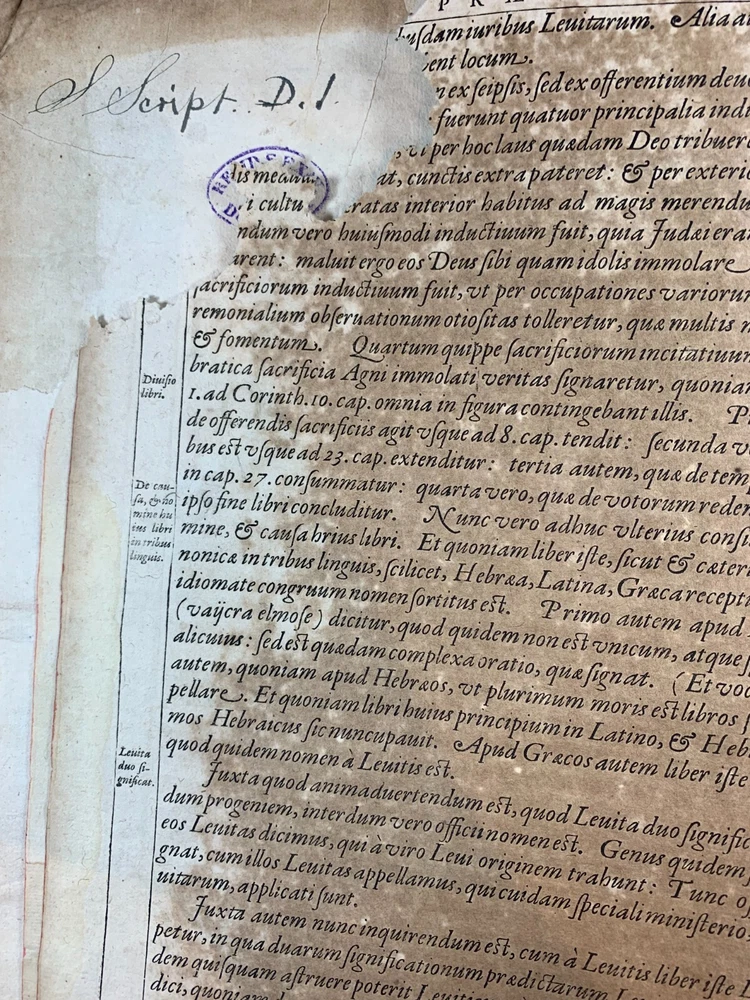 S Script. D.1.
PRÆ
busdam iuribus Leuitarum. Alia a
bent locum.
n ex seipsis, sed ex offerentium deuo
fuerunt quatuor principalia indu
, vt per hoc laus quædam Deo tribuere
lis mediā at, cunctis extra pateret: & per exterio
i cultu ratas interior habitus ad magis merendu
ndum vero huiusmodi inductiuum fuit, quia Judæi eran
arent: maluit ergo eos Deus sibi quam idolis immolare
sacrificiorum inductiuum fuit, vt per occupationes variorum
remonialium obseruationum otiositas tolleretur, quæ multis m
& fomentum. Quartum quippe sacrificiorum incitatiuum
bratica sacrificia Agni immolati veritas signaretur, quoniam
1. ad Corinth. 10. cap. omnia in figura contingebant illis. P
Diuisio
libri.
de offerendis sacrificiis agit vsque ad 8. cap. tendit: secunda v
bus est vsque ad 23. cap. extenditur: tertia autem, quæ de tem
in cap. 27. consummatur: quarta vero, quæ de votorum redem
ipso fine libri concluditur. Nunc vero adhuc vlterius consi
De cau-
sa, & no
mine hu
ius libri
in tribus
linguis.
mine, & causa hrius libri. Et quoniam liber iste, sicut & cæteri
nonicæ in tribus linguis, scilicet, Hebræa, Latina, Græca recepti
idiomate congruum nomen sortitus est. Primo autem apud
(vaijcra elmose) dicitur, quod quidem non est vnicum, atque s
alicuius: sed est quædam complexa oratio, quæ signat. (Et voc
autem, quoniam apud Hebræos, vt plurimum moris est libros s
pellare. Et quoniam libri huius principium in Latino, & Heb
mos Hebraicus sic nuncupauit. Apud Græcos autem liber iste
quod quidem nomen à Leuitis est.
Leuita
duo si-
gnificat.
Juxta quod animaduertendum est, quod Leuita duo signific
dum progeniem, interdum vero officii nomen est. Genus quidem
eos Leuitas dicimus, qui à viro Leui originem trahunt: Tunc o
gnat, cum illos Leuitas appellamus, qui cuidam speciali ministerio
uitarum, applicati sunt.
Juxta autem nunc inquirendum est, cum à Leuitis liber iste
petur, in qua duarum significationum prædictarum
dem quisquam astruere poterit
dici, quoniam